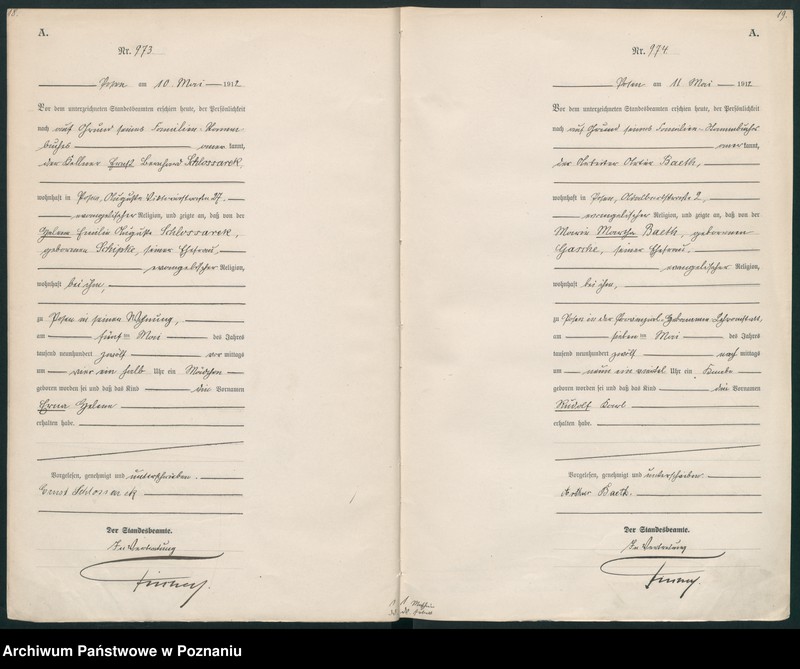 18.
A.
Nr. 973
Posen am 10. Mai 1912
Vor dem unterzeichneten Standesbeamten erschien heute, der Persönlichkeit
nach auf Grund seines Familien-Stamm-
buchs anerkannt,
der Kellner Ernst Bernhard Schlossarek,
wohnhaft in Posen, Auguste Viktoriastraße 27,
evangelischer Religion, und zeigte an, daß von der
Helene Emilie Auguste Schlossarek,
geborenen Schipke, seiner Ehefrau,
evangelischer Religion,
wohnhaft bei ihm,
zu Posen in seiner Wohnung,
am fünften Mai des Jahres
tausend neunhundert zwölf vormittags
um vier ein halb Uhr ein Mädchen
geboren worden sei und daß das Kind die Vornamen
Erna Helene
erhalten habe.
Vorgelesen, genehmigt und unterschrieben.
Ernst Schlossarek
Der Standesbeamte.
In Vertretung
19.
A.
Nr. 974.
Posen am 11. Mai 1912
Vor dem unterzeichneten Standesbeamten erschien heute, der Persönlichkeit
nach auf Grund seines Familien-Stammbuchs
anerkannt,
der Arbeiter Artur Baeth,
wohnhaft in Posen, Adalbertstraße 2,
evangelischer Religion, und zeigte an, daß von der
Marie Martha Baeth, geborenen
Gasche, seiner Ehefrau,
evangelischer Religion,
wohnhaft bei ihm,
zu Posen in der Provinzial-Hebammen-Lehranstalt,
am sieben ten Mai des Jahres
tausend neunhundert zwölf nachmittags
um neun ein viertel Uhr ein Knabe
geboren worden sei und daß das Kind die Vornamen
Rudolf Karl
erhalten habe.
Vorgelesen, genehmigt und unterschrieben.
Arthur Baeth.
Der Standesbeamte.
In Vertretung
Archiwum Państwowe w Poznaniu